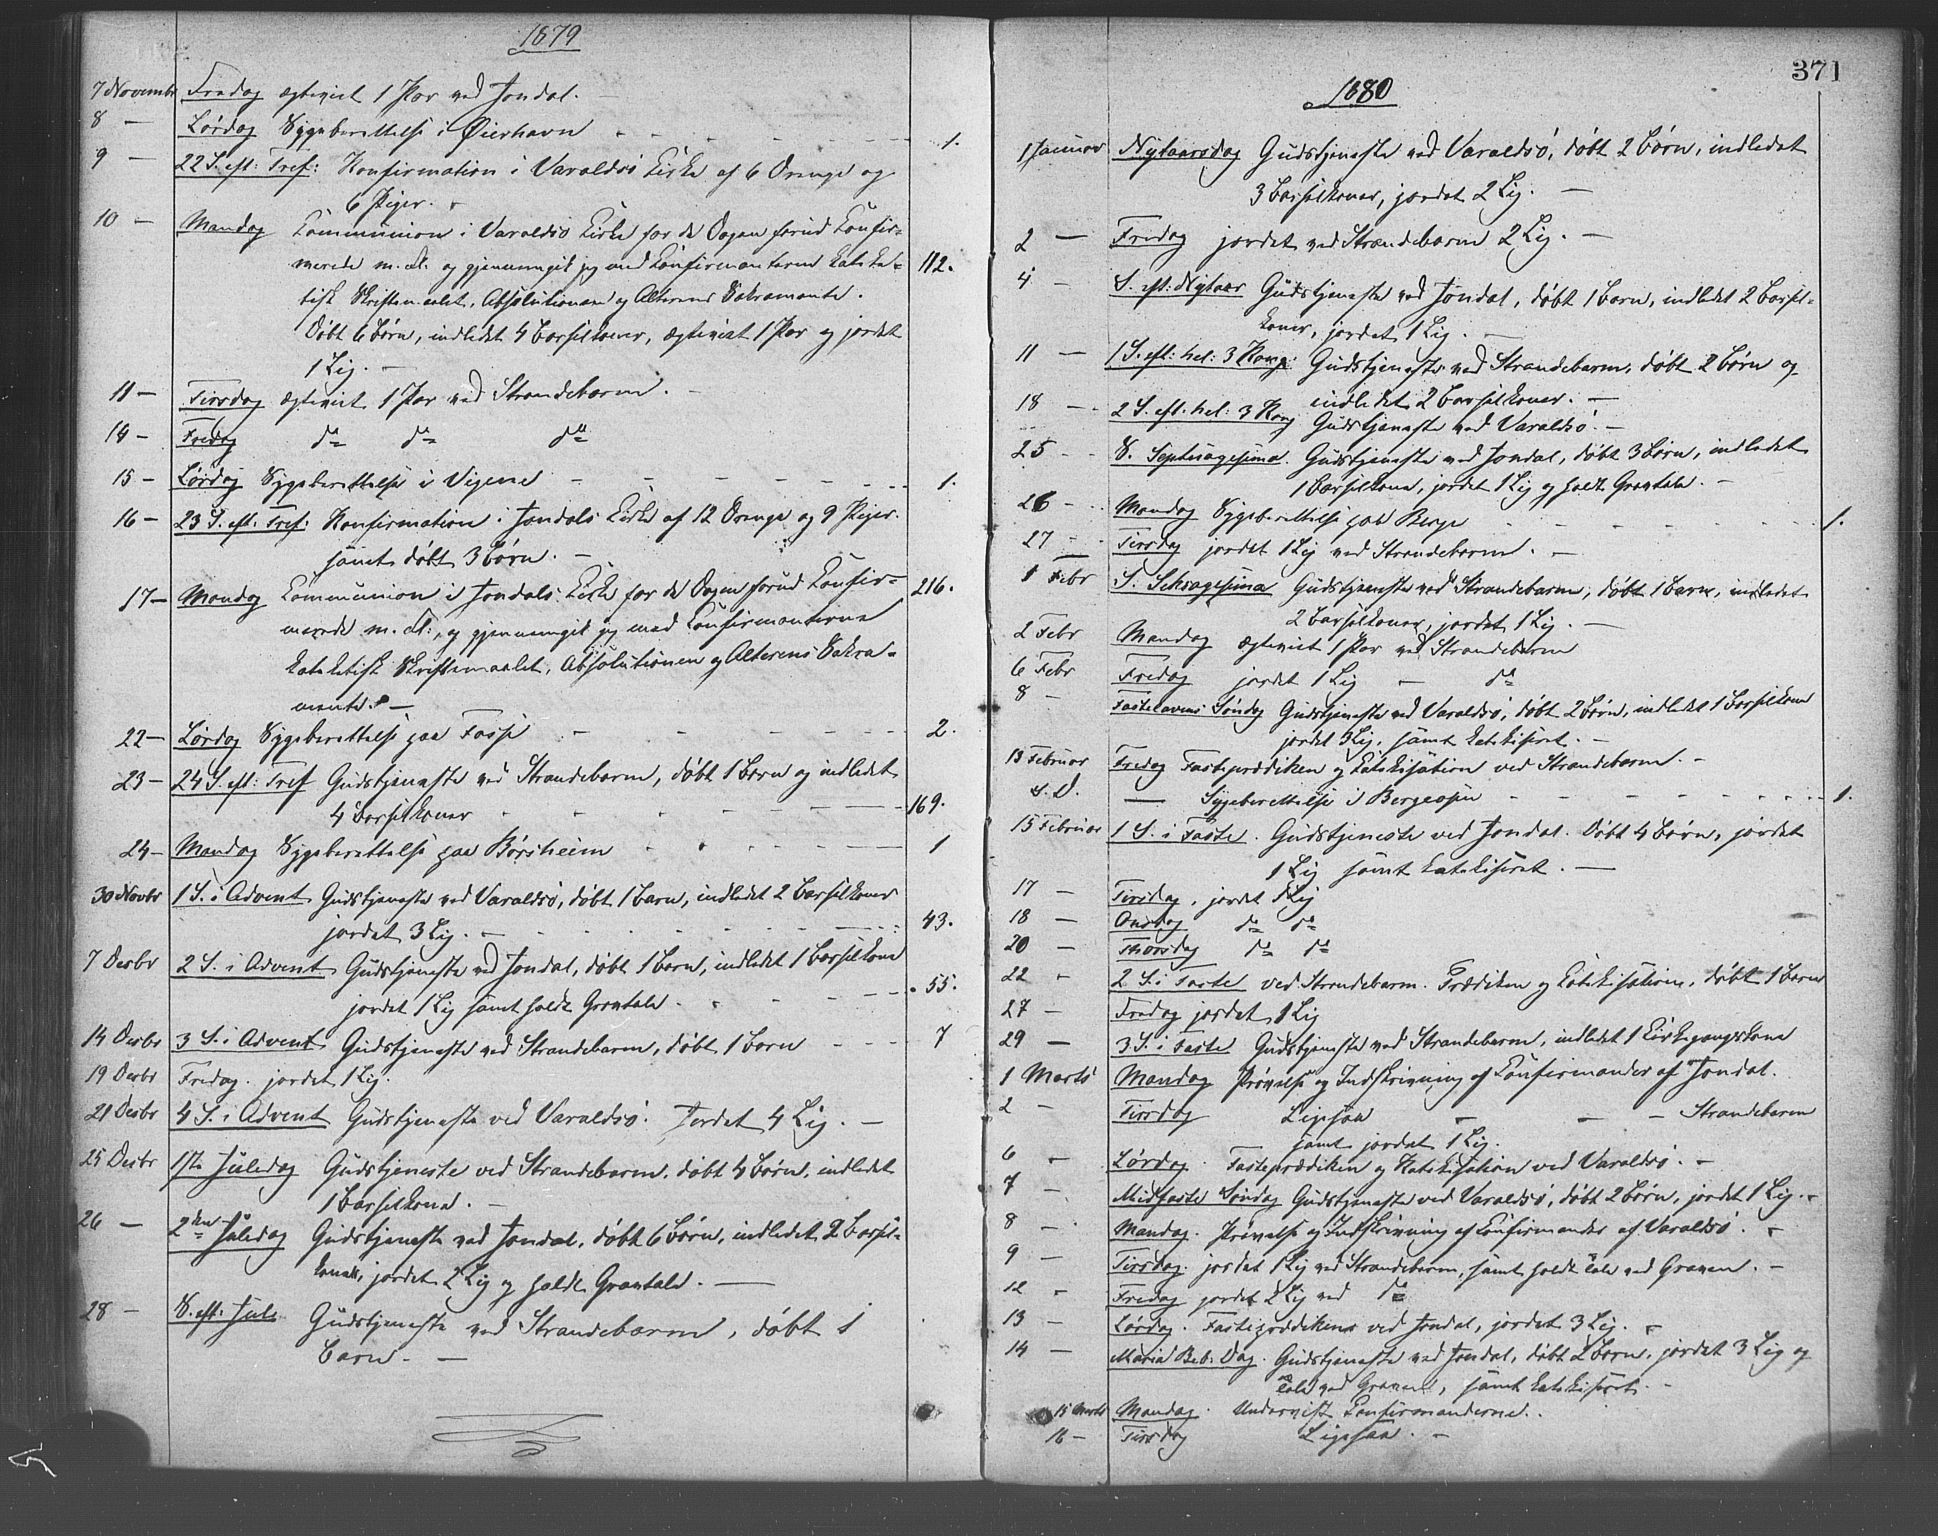 1879
7 Novembr Fredag ægteviet 1 Par ved Jondal.
8 — Lørdag Sygeberettelse i Øierhavn - - - 1.
9 — 22 S. eft: Tref: Konfirmation i Varaldsö Kirke af 6 Drenge og
6 Piger.
10 — Mandag Communion i Varaldsö Kirke for de Dagen forud Konfir-
merede m. fl. og gjennemgik jeg med Konfirmanterne kateke- 112.
tisk Skriftemaalet, Absolutionen og Alterens Sakramente.
Døbt 6 Børn, indledet 4 Barselkoner, ægteviet 1 Par og jordet
1 Lig. —
11 — Tirsdag ægteviet 1 Par ved Strandebarm. —
14 — Fredag do do do
15 — Lørdag Sygeberettelse i Vigene - - - 1.
16 — 23 S. eft: Tref: Konfirmation i Jondals Kirke af 12 Drenge og 9 Piger.
samt døbt 3 Børn. —
17 — Mandag Communion i Jondals Kirke for de Dagen forud Konfir- 216.
merede m. fl:, og gjennemgik jeg med Konfirmanterne
kateketisk Skriftemaalet, Absolutionen og Alterens Sakra-
mente. —
22 — Lørdag Sygeberettelse paa Fosse - - - 2.
23 — 24 S. eft: Tref Gudstjeneste ved Strandebarm, døbt 1 Barn og indledet
4 Barselkoner - - - 169.
24 — Mandag Sygeberettelse paa Børsheim - - - 1
30 Novbr 1 S. i Advent Gudstjeneste ved Varaldsö, døbt 1 Barn, indledet 2 Barselkoner
jordet 3 Lig. - - - 43.
7 Desbr 2 S. i Advent Gudstjeneste ved Jondal, døbt 1 Barn, indledet 1 Barselkone
jordet 1 Lig samt holdt Gravtale. - - - 55.
14 Desbr 3 S. i Advent Gudstjeneste ved Strandebarm, døbt 1 Barn - - - 7
19 Desbr Fredag. jordet 1 Lig.
21 Desbr 4 S. i Advent Gudstjeneste ved Varaldsö. Jordet 4 Lig. —
25 Desbr 1ste Juledag Gudstjeneste ved Strandebarm, døbt 4 Børn, indledet
1 Barselkone. —
26 — 2den Juledag Gudstjeneste ved Jondal, døbt 6 Børn, indledet 2 Barsel-
koner, jordet 2 Lig og holdt Gravtale. —
28 — S. eft: Jul Gudstjeneste ved Strandebarm, døbt 1
Barn. —
371
1880
1 Januar Nytaarsdag Gudstjeneste ved Varaldsö, døbt 2 Børn, indledet
3 Barselkoner, jordet 2 Lig. —
2 — Fredag jordet ved Strandebarm 2 Lig. —
4 — S. eft: Nytaar Gudstjeneste ved Jondal, døbt 1 Barn, indledet 2 Barsel-
koner, jordet 1 Lig. —
11 — 1 S. eft: hel: 3 Kong. Gudstjeneste ved Strandebarm, døbt 2 Børn og
indledet 2 Barselkoner. —
18 — 2 S. eft. hel: 3 Kong Gudstjeneste ved Varaldsö —
25 - - S. Septuagesima. Gudstjeneste ved Jondal, døbt 3 Børn, indledet
1 Barselkone, jordet 1 Lig og holdt Gravtale. —
26 - Mandag Sygeberettelse paa Berge - - - 1.
27 - - Tirsdag jordet 1 Lig ved Strandebarm. —
1 Febr S. Seksagesima Gudstjeneste ved Strandebarm, døbt 1 Barn, indledet
2 Barselkoner, jordet 1 Lig. —
2 Febr Mandag ægteviet 1 Par ved Strandebarm
6 Febr Fredag jordet 1 Lig — do
8 — Fastelavens Søndag Gudstjeneste ved Varaldsö, døbt 2 Børn, indledet 1 Barselkone
jordet 3 Lig, samt katekiseret. —
13 Februar Fredag Fasteprædiken og Katekisation ved Strandebarm. —
S. D. — Sygeberettelse i Bergeosen - - - 1.
15 Februar 1 S. i Faste. Gudstjeneste ved Jondal. Døbt 4 Børn, jordet
1 Lig samt katekiseret. —
17 — Tirsdag, jordet 1 Lig
18 — Onsdag do do
20 — Thorsdag do do
22 - 2 S. i Faste ved Strandebarm. Prædiken og Katekisation, døbt 1 Barn
27 — Fredag jordet 1 Lig
29 — 3 S. i Faste Gudstjeneste ved Strandebarm, indledet 1 Kirkegangskone
1 Marts Mandag Prøvelse og Indskrivning af Confirmander af Jondal.
2 - Tirsdag Ligesaa — — — Strandebarm
samt jordet 1 Lig.
6 - Lørdag. Fasteprædiken og Katekisation ved Varaldsö. —
7 — Midfaste Søndag Gudstjeneste ved Varaldsö, døbt 2 Børn, jordet 1 Lig. -
8 — Mandag. Prøvelse og Indskrivning af Confirmander af Varaldsö.
9 — Tirsdag. jordet 1 Lig ved Strandebarm, samt holdt Tale ved Graven. —
12 - Fredag jordet 2 Lig ved do
13 — Lørdag. Fasteprædiken ved Jondal, jordet 3 Lig. -
14 — Maria Beb. Dag. Gudstjeneste ved Jondal, døbt 2 Børn, jordet 3 Lig og
Tale ved Graven, samt katekiseret. -
15 Marts Mandag. Undervist Confirmanderne.
16 — Tirsdag Ligesaa. —